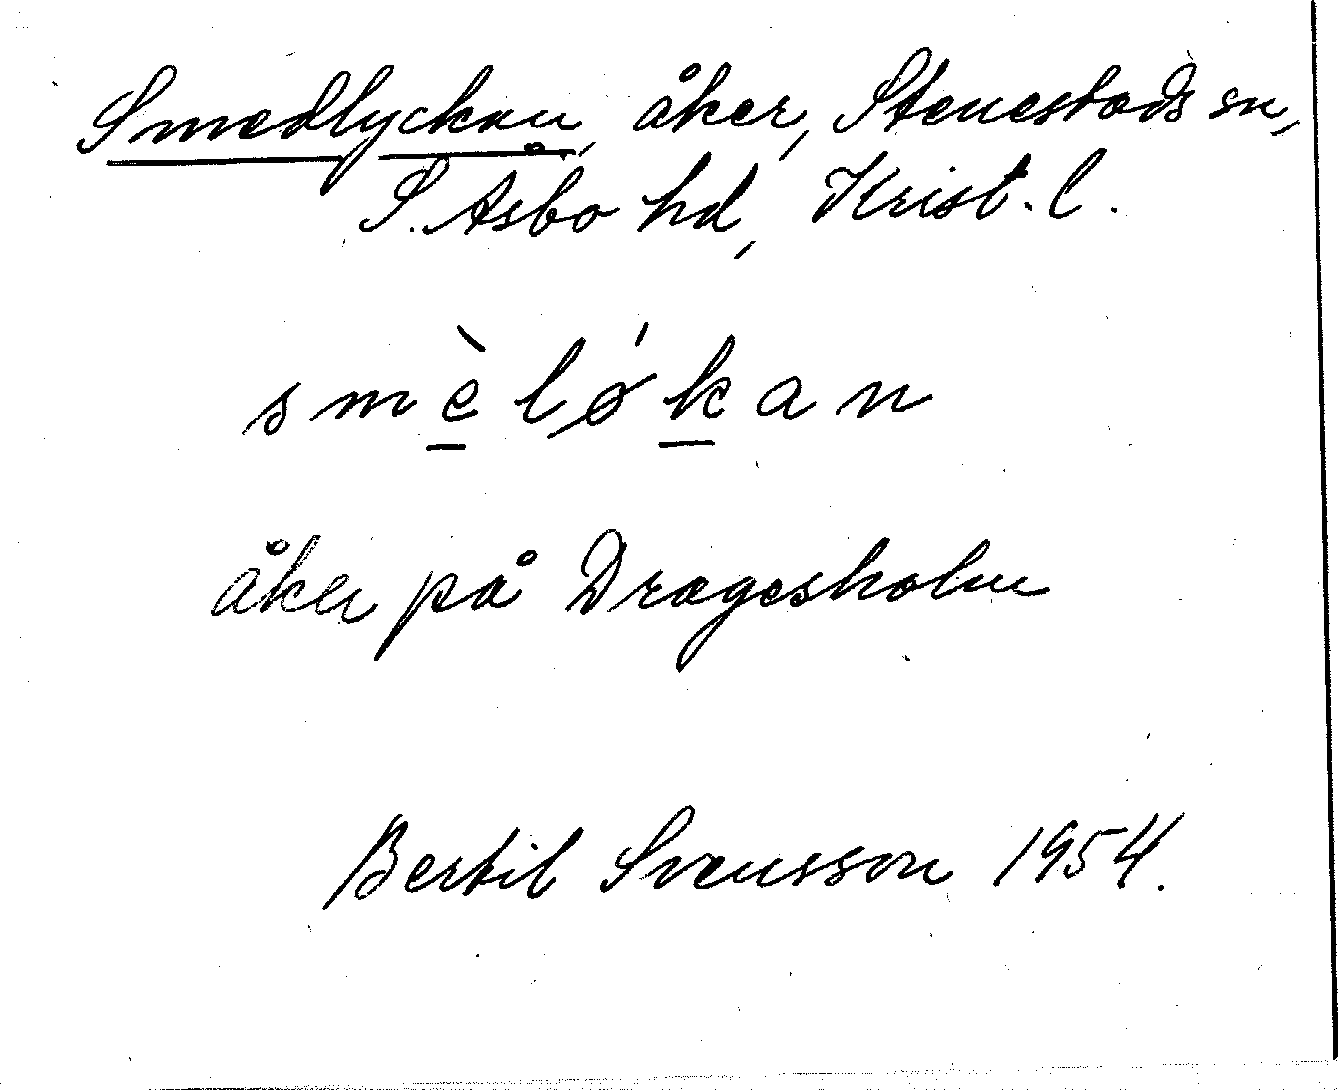 Smedlyckan, åker, Stenestads sn,
S. Åsbo hd, Krist. l.
smèlǿkan
åker på Dragesholm
Bertil Svensson 1954.